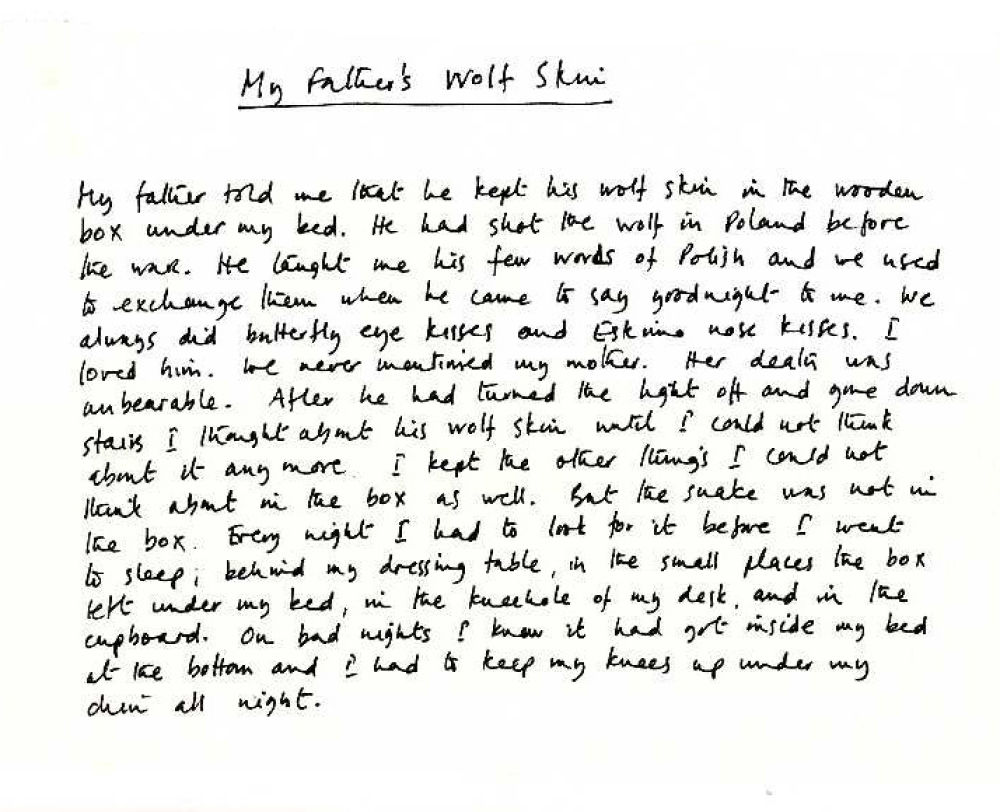 My Father's Wolf Skin
My father told me that he kept his wolf skin in the wooden
box under my bed. He had shot the wolf in Poland before
the war. He taught me his few words of Polish and we used
to exchange them when he came to say goodnight to me. We
always did butterfly eye kisses and Eskimo nose kisses. I
loved him. We never mentioned my mother. Her death was
unbearable. After he had turned the light off and gone down
stairs I thought about his wolf skin until I could not think
about it any more. I kept the other things I could not
think about in the box as well. But the snake was not in
the box. Every night I had to look for it before I went
to sleep; behind my dressing table, in the small places the box
left under my bed, in the kneehole of my desk, and in the
cupboard. On bad nights I knew it had got inside my bed
at the bottom and I had to keep my knees up under my
chin all night.